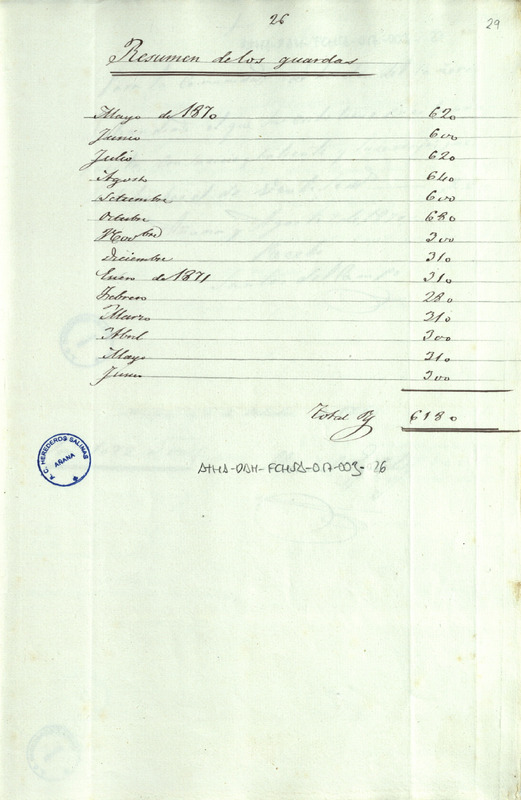 26
29
Resumen de los guardas
Mayo de 1870 620
Junio 600
Julio 620
Agosto 640
Setiembre 600
Octubre 680
Novbre 300
Diciembre 310
Enero de 1871 310
Febrero 280
Marzo 310
Abril 300
Mayo 310
Junio 300
Total 6180
HEREDEROS SALINAS
AÑANA
ATHA-DAH-FCHSA-017-003-26